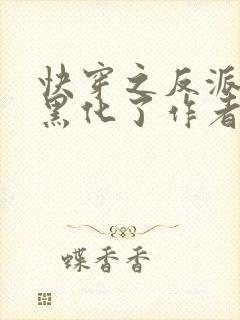 快穿之反派
黑化了作者
蝶香香